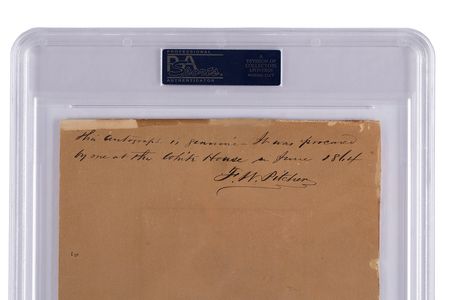 PROFESSIONAL
PSA
Sports
AUTHENTICATOR
A
DIVISION OF
COLLECTORS
UNIVERSE
This autograph is genuine - It was procured
by me at the White House in June 1864
F. W. Pitcher